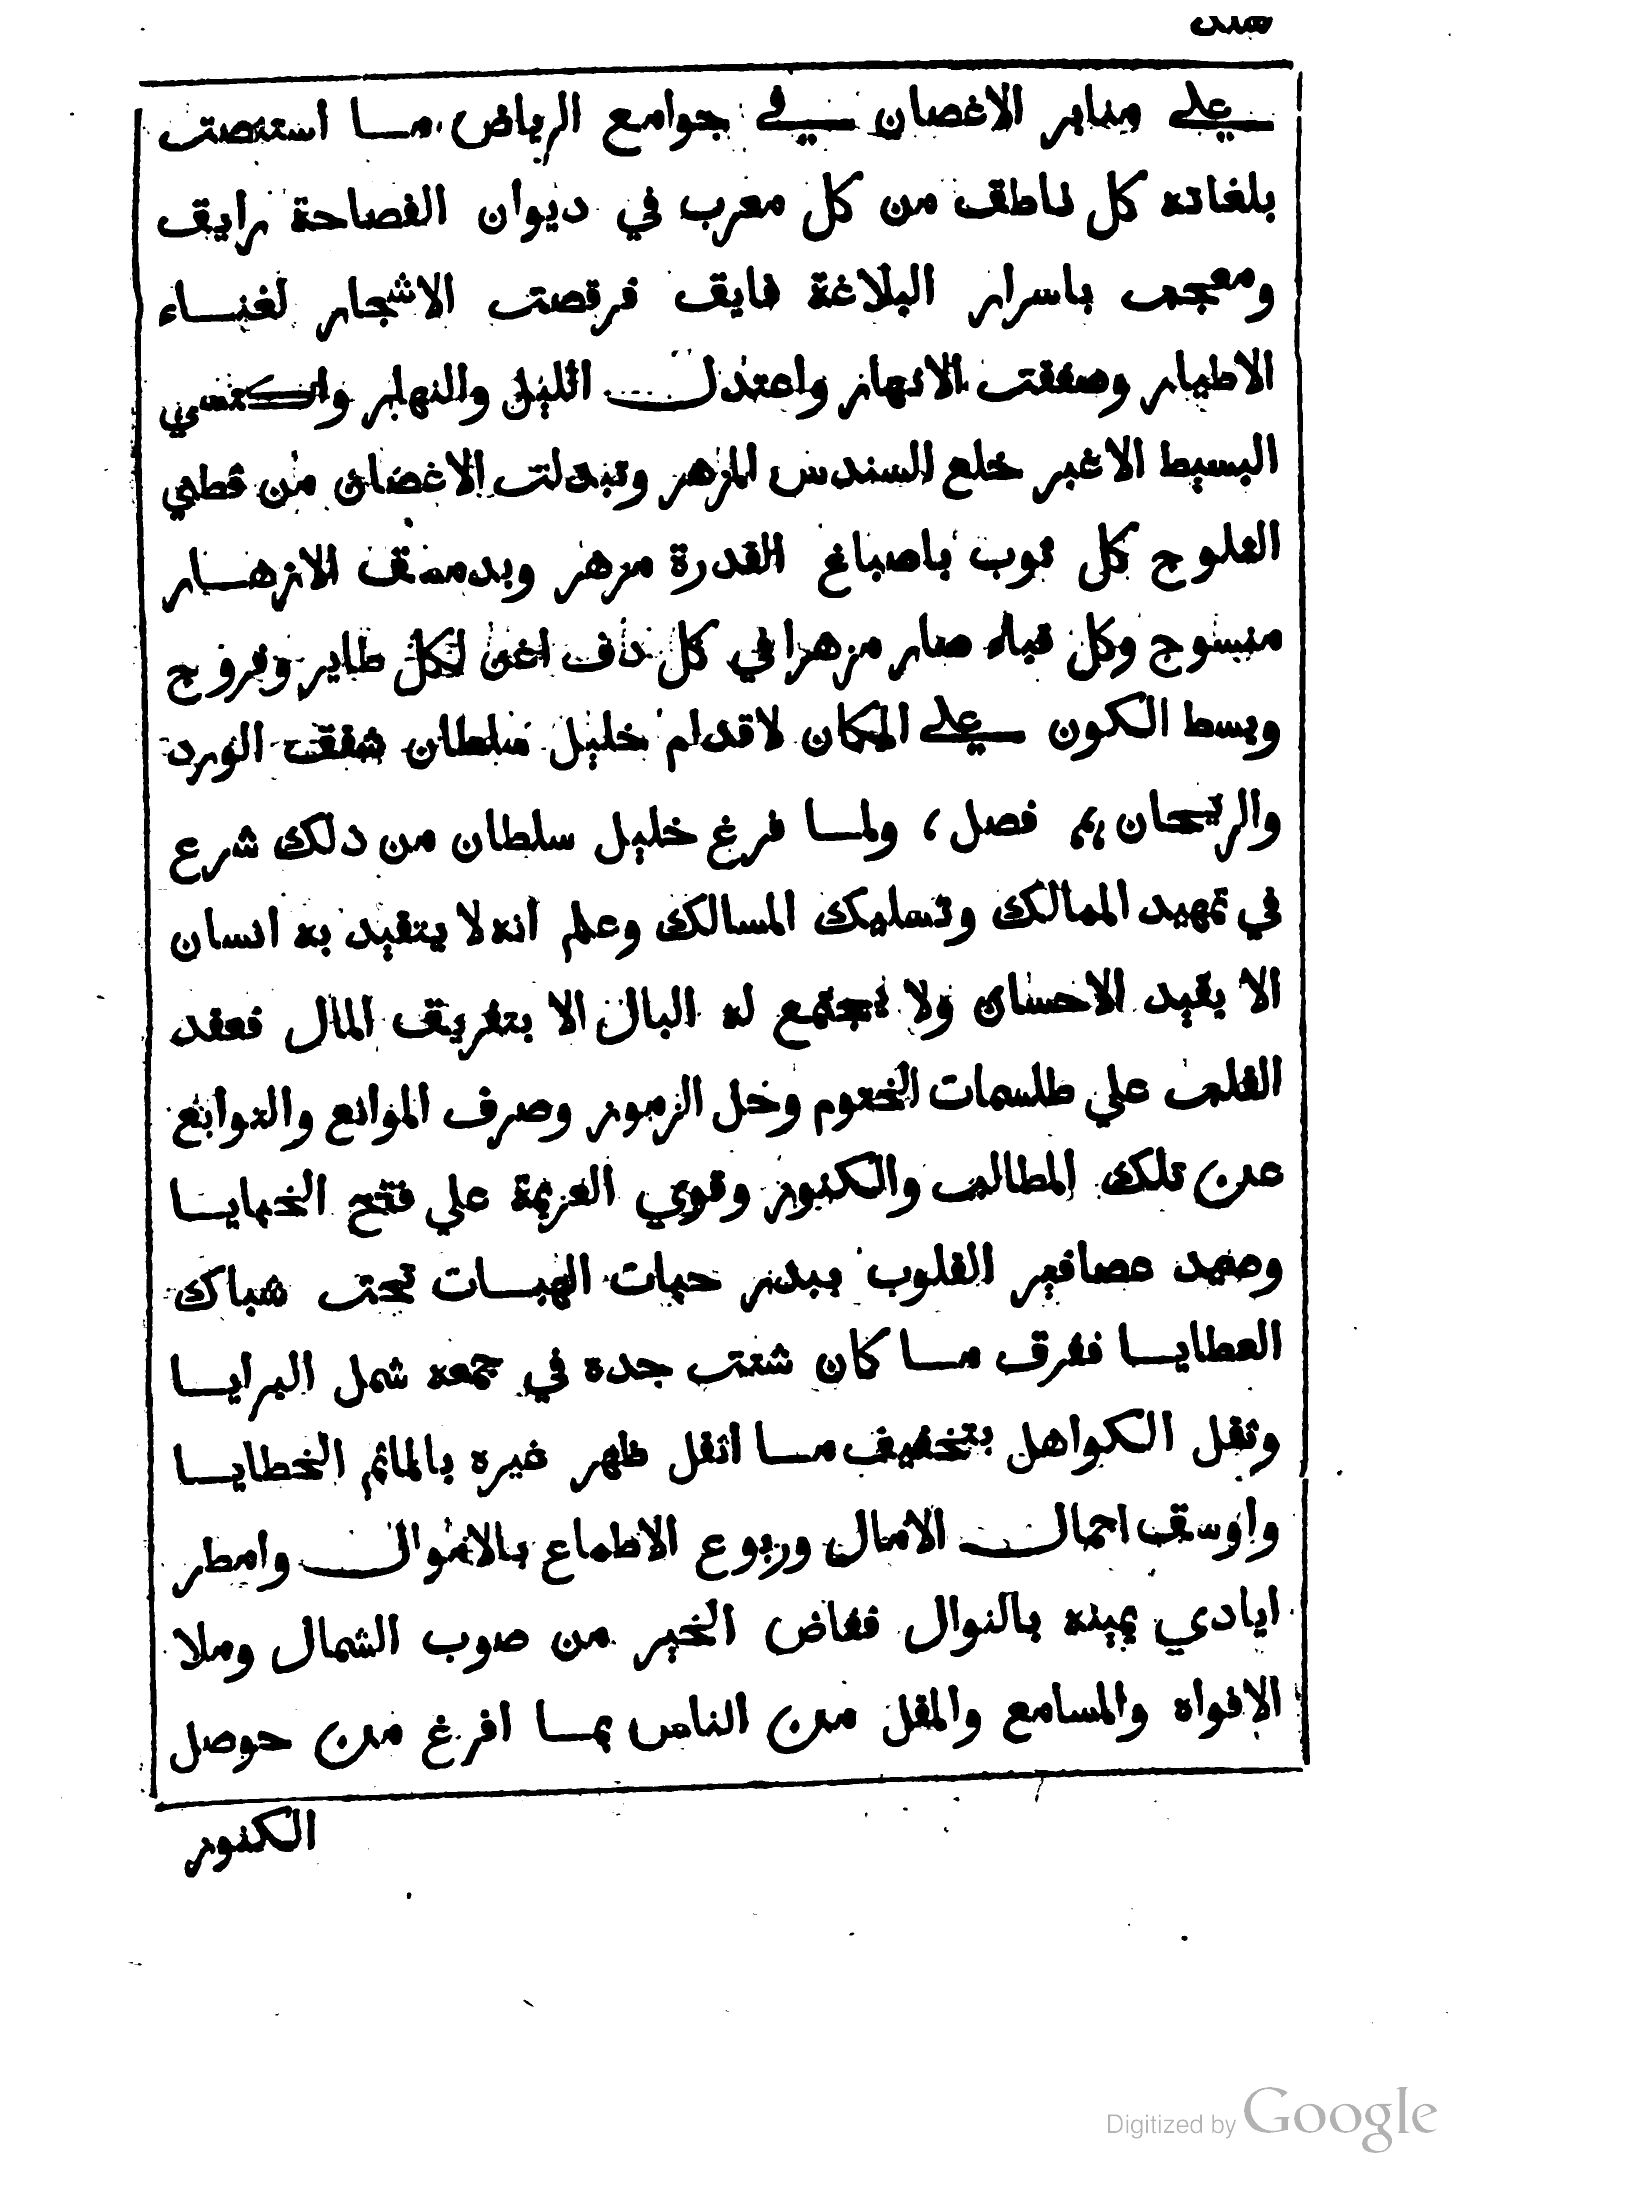 على منابر الاغصان في جوامع الرياض ما استنصت
بلغاته كل ناطق من كل معرب في ديوان الفصاحة رايق
ومعجم باسرار البلاغة فايق فرقصت الاشجار لغناء
الاطيار وصفقت الانهار واعتدل الليل والنهار واكتسي
البسيط الاغبر خلع السندس المزهر وتبدلت الاغصان من قطني
الثلوج كل ثوب باصباغ القدرة مزهر وبدمسق الازهار
منسوج وكل قباء صار مزهرا في كل دف اغن لكل طاير وفروج
وبسط الكون على المكان لاقدام خليل سلطان شقق الورد
والريحان فصل، ولما فرغ خليل سلطان من ذلك شرع
في تمهيد الممالك وتسليك المسالك وعلم انه لا يتقيد به انسان
الا بقيد الاحسان ولا تجتمع له البال الا بتفريق المال فعقد
القلب علي طلسمات الختوم وحل الرموز وصرف الموانع والتوابع
عن تلك المطالب والكنوز وقوي العزيمة علي فتح الخبايا
وصيد عصافير القلوب ببذر حبات الهبات تحت شباك
العطايا ففرق ما كان شتت جده في جمعه شمل البرايا
وثقل الكواهل بتخفيف ما اثقل ظهر غيره بالماثم الخطايا
واوسق احمال الامال وربوع الاطماع بالاموال وامطر
ايادي يمينه بالنوال ففاض الخير من صوب الشمال وملا
الافواه والمسامع والمقل من الناس بما افرغ من حوصل
الكنوز
Digitized by Google